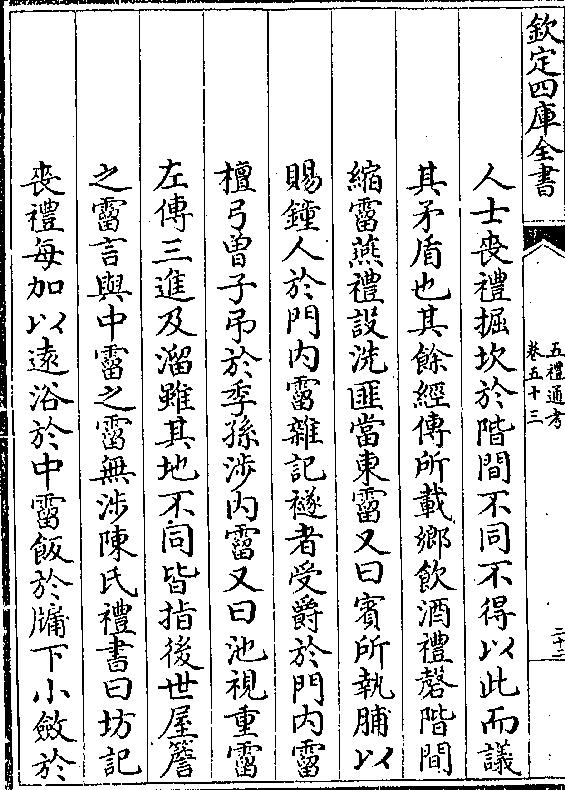 欽定四庫全書
五禮通考
卷五十三
二十二
人士喪禮掘坎於階間不同不得以此而議
其矛盾也其餘經傳所載鄉飲酒禮磬階間
縮霤燕禮設洗匪當東霤又曰賓所執脯以
賜鐘人於門內霤雜記襚者受爵於門內霤
檀弓曾子弔於季孫涉內霤又曰池視重霤
左傳三進及溜雖其地不同皆指後世屋簷
之霤言與中霤之霤無涉陳氏禮書曰坊記
喪禮每加以逺浴於中霤飯於牖下小斂於